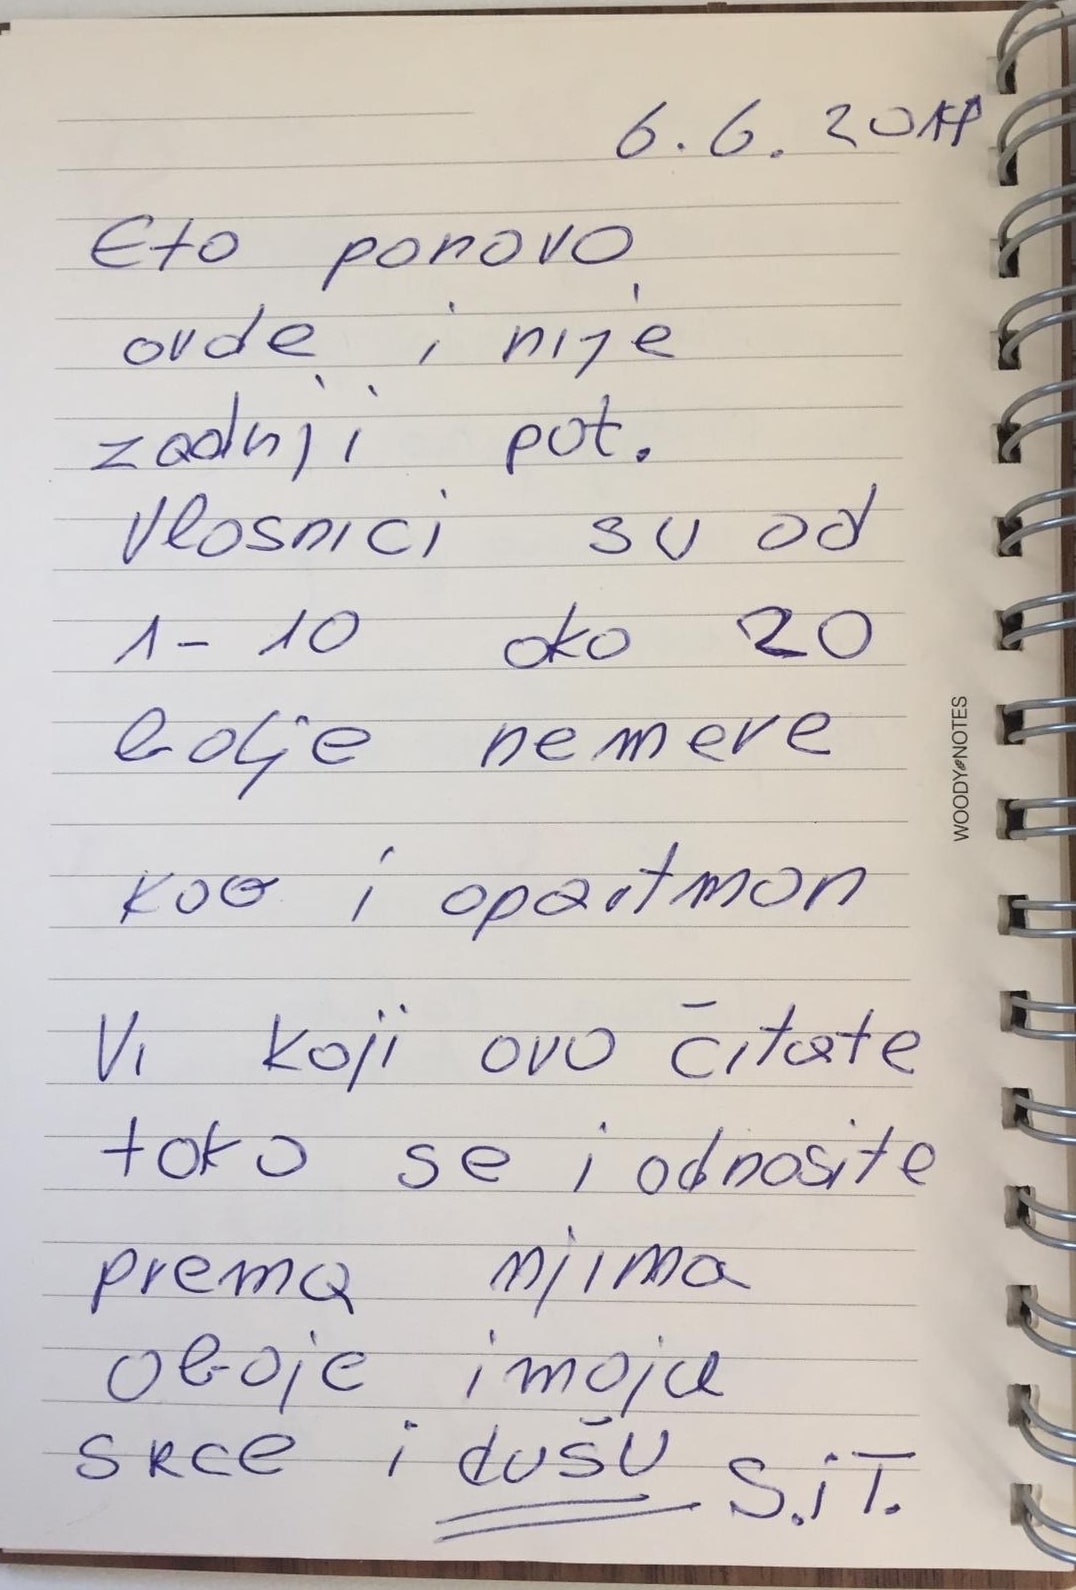 6.6.2018
Eto ponovo
ovde i nije
zadnji put.
Vlasnici su od
1-10 oko 20
bolje nemere
kao i apartman
Vi koji ovo čitate
tako se i odnosite
prema njima
oboje imaju
srce i dušu S.iT.
WOODY NOTES